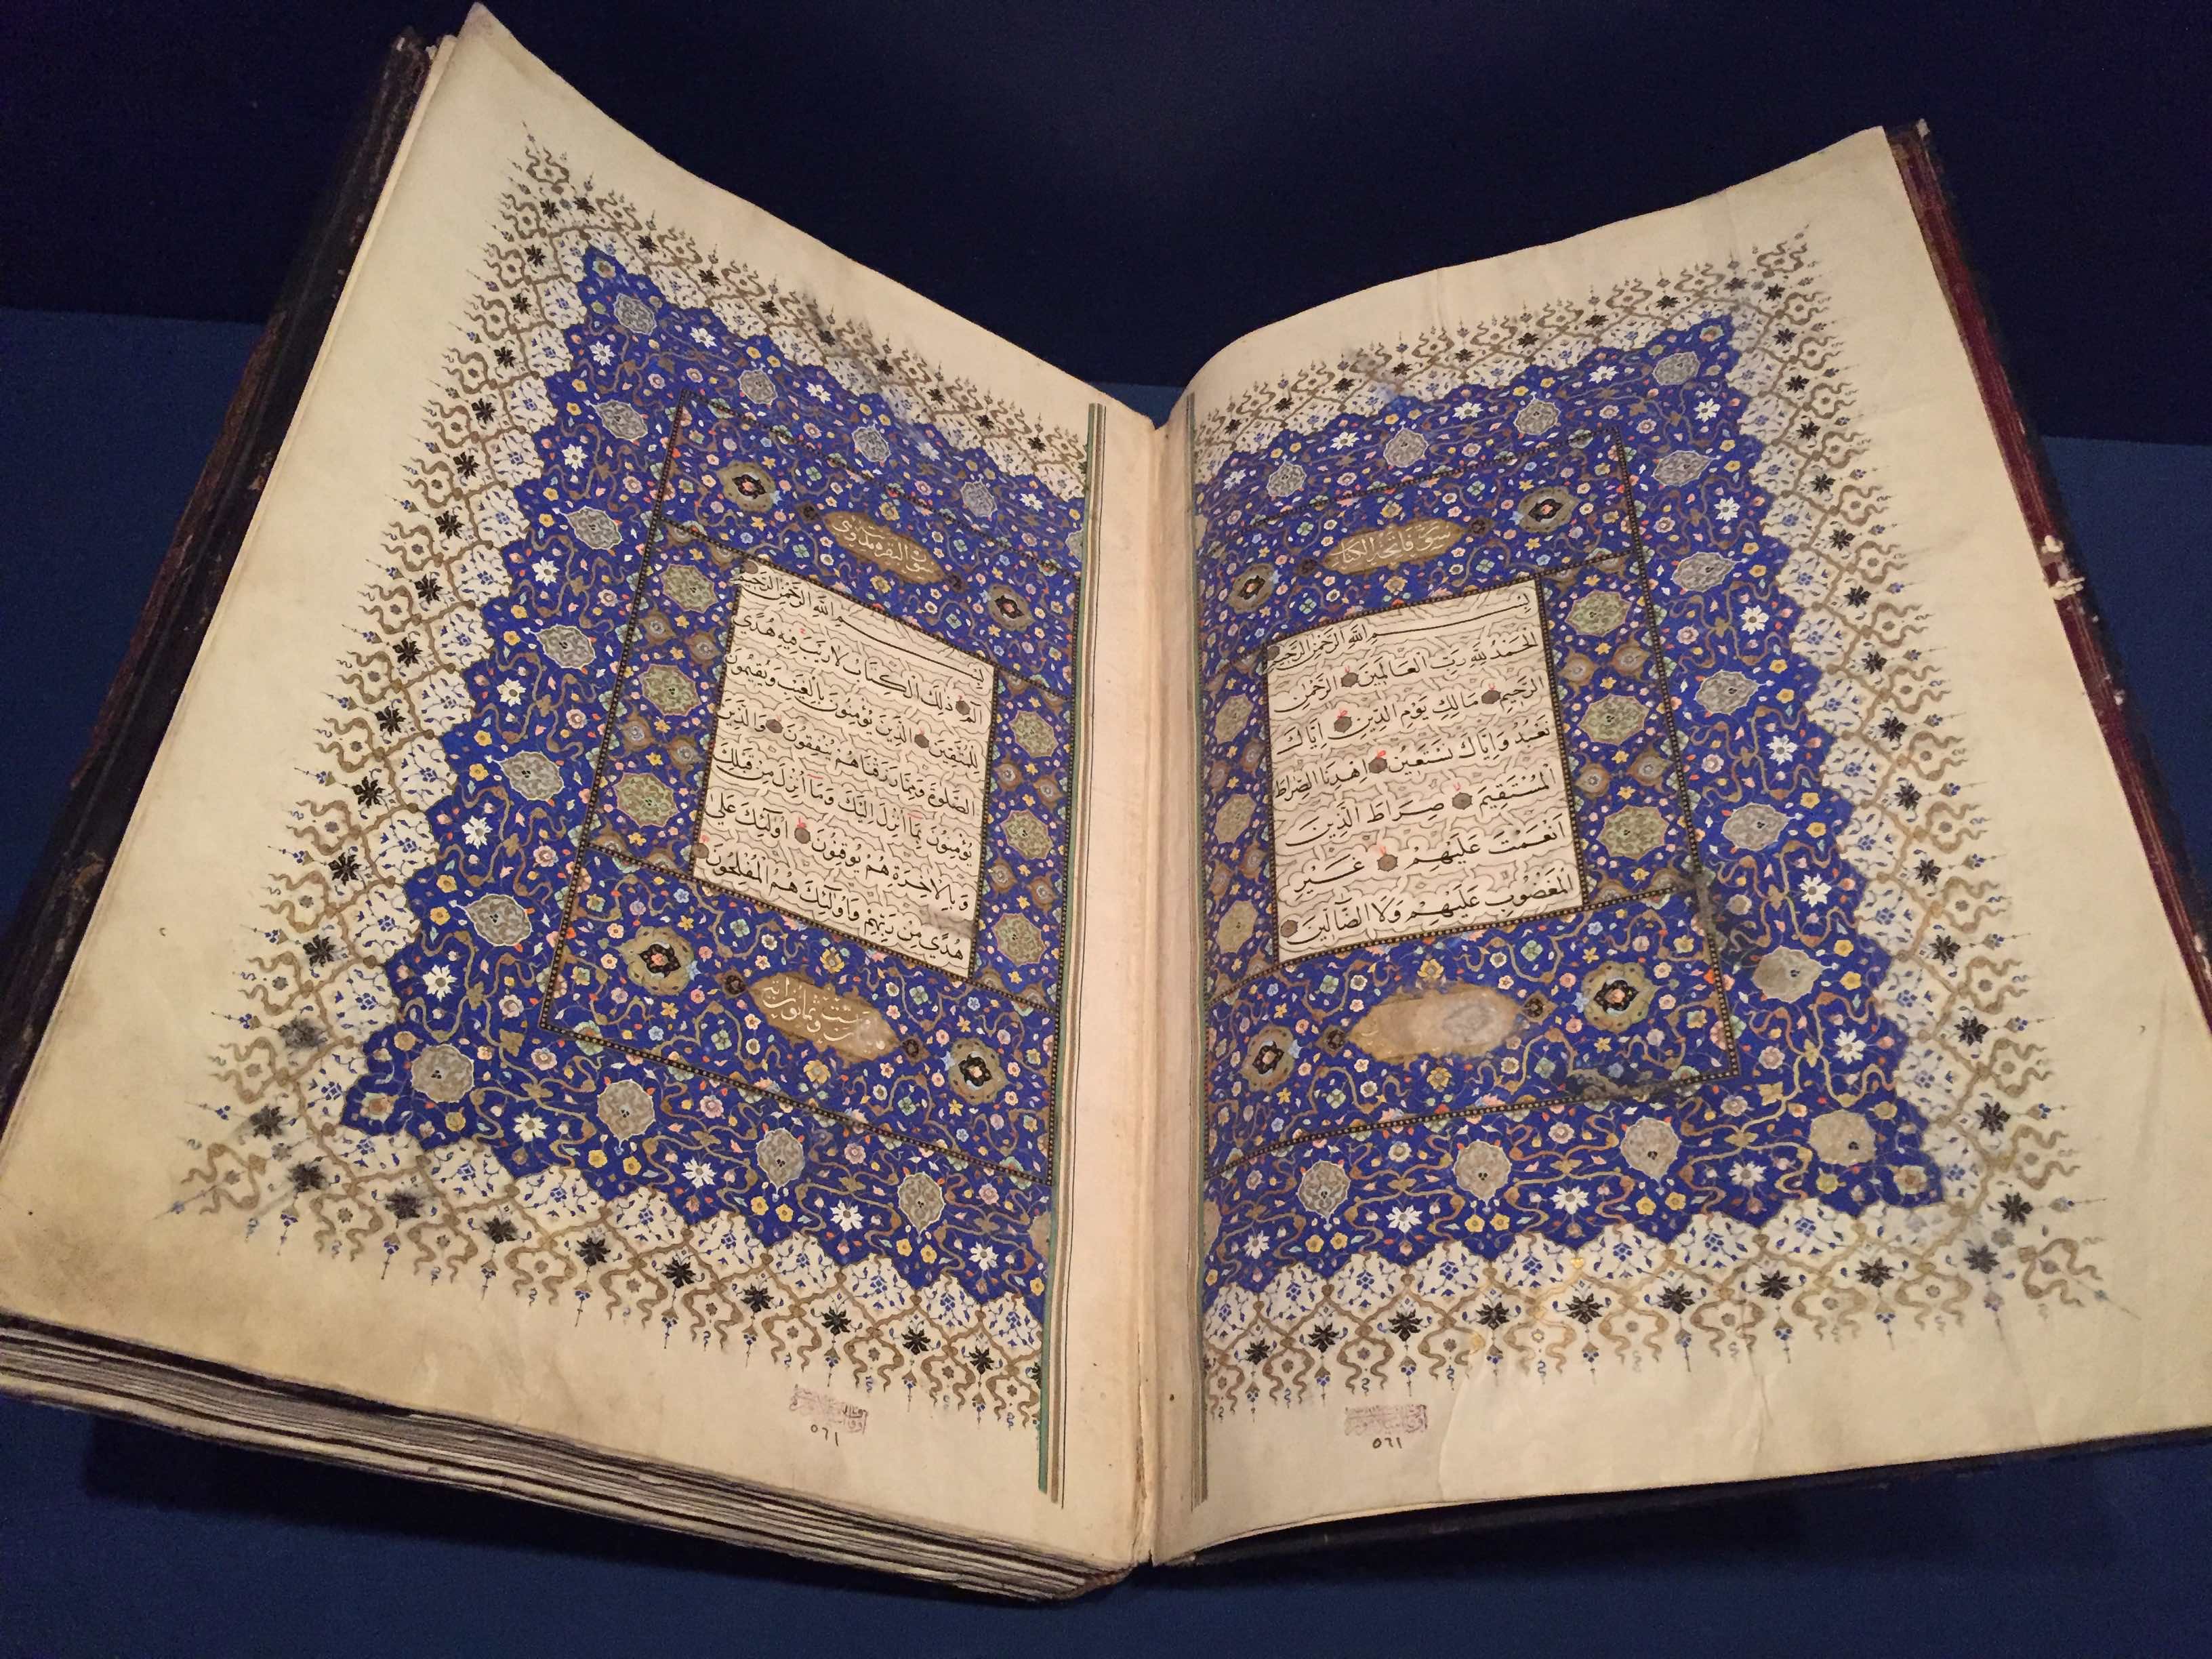 سورة فاتحة الكتاب
بسم الله الرحمن الرحيم
الحمد لله رب العالمين الرحمن
الرحيم مالك يوم الدين اياك
نعبد واياك نستعين اهدنا الصراط
المستقيم صراط الذين
انعمت عليهم غير
المغضوب عليهم ولا الضالين
٥٦١
سورة البقرة
بسم الله الرحمن الرحيم
الم ذلك الكتاب لا ريب فيه هدى
للمتقين الذين يؤمنون بالغيب ويقيمون
الصلوة ومما رزقناهم ينفقون والذين
يؤمنون بما انزل اليك وما انزل من قبلك
وبالاخرة هم يوقنون اولئك على
هدى من ربهم واولئك هم المفلحون
وثمانون اية
٥٦١